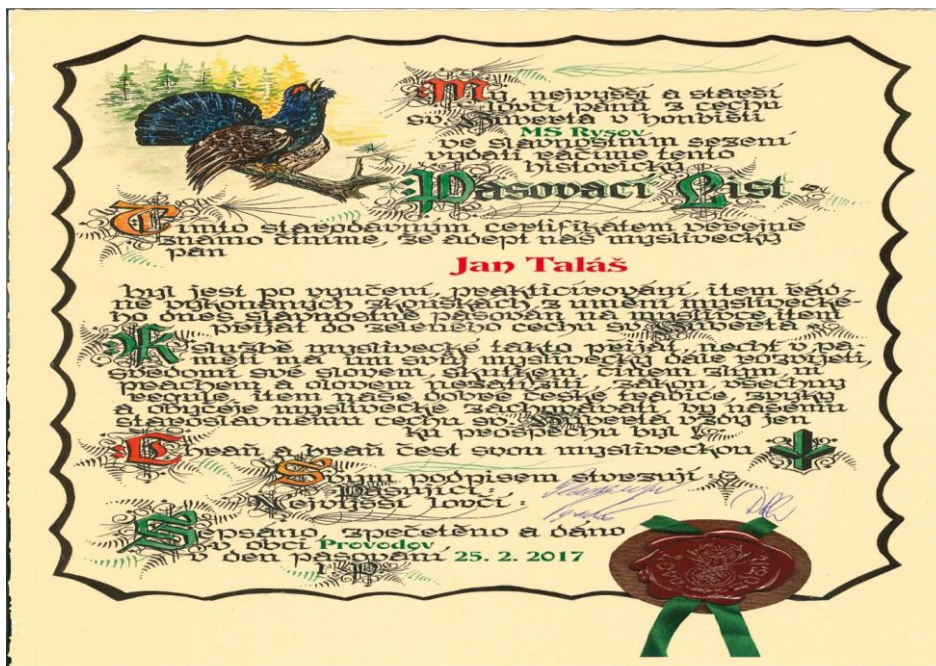 My nejvyšší a starší
lovčí pánů z cechu
sv. Huberta v honbišti
MS Rysov
ve slavnostním sezení
vydati ráčíme tento
historický
Pasovací List
Tímto starodávným certifikátem veřejně
známo číníme, že adept náš myslivecký
pán
Jan Taláš
byl jest po vyučení, prakticírování, item řád-
ně vykonaných zkouškách z umění myslivecké-
ho dnes slavnostně pasován na myslivce item
přijat do zeleného cechu sv. Huberta
K službě myslivecké takto přijat nechť v pa-
měti má um svůj myslivecký dále rozvíjeti,
svědomí své slovem, skutkem, činem zlým ni
prachem a olovem nezatížiti, zákon všechny
regule, item naše dobré české tradice, zvyky
a obyčeje myslivecké zachovávati, by našemu
staroslavnému cechu sv. Huberta vždy jen
ku prospěchu byl
Chraň a braň čest svou mysliveckou
Svým podpisem stvrzují
Pasující:
Nejvyšší lovčí:
Sepsáno, zpečetěno a dáno
v obci Provodov
v den pasování 25. 2. 2017
L. P.